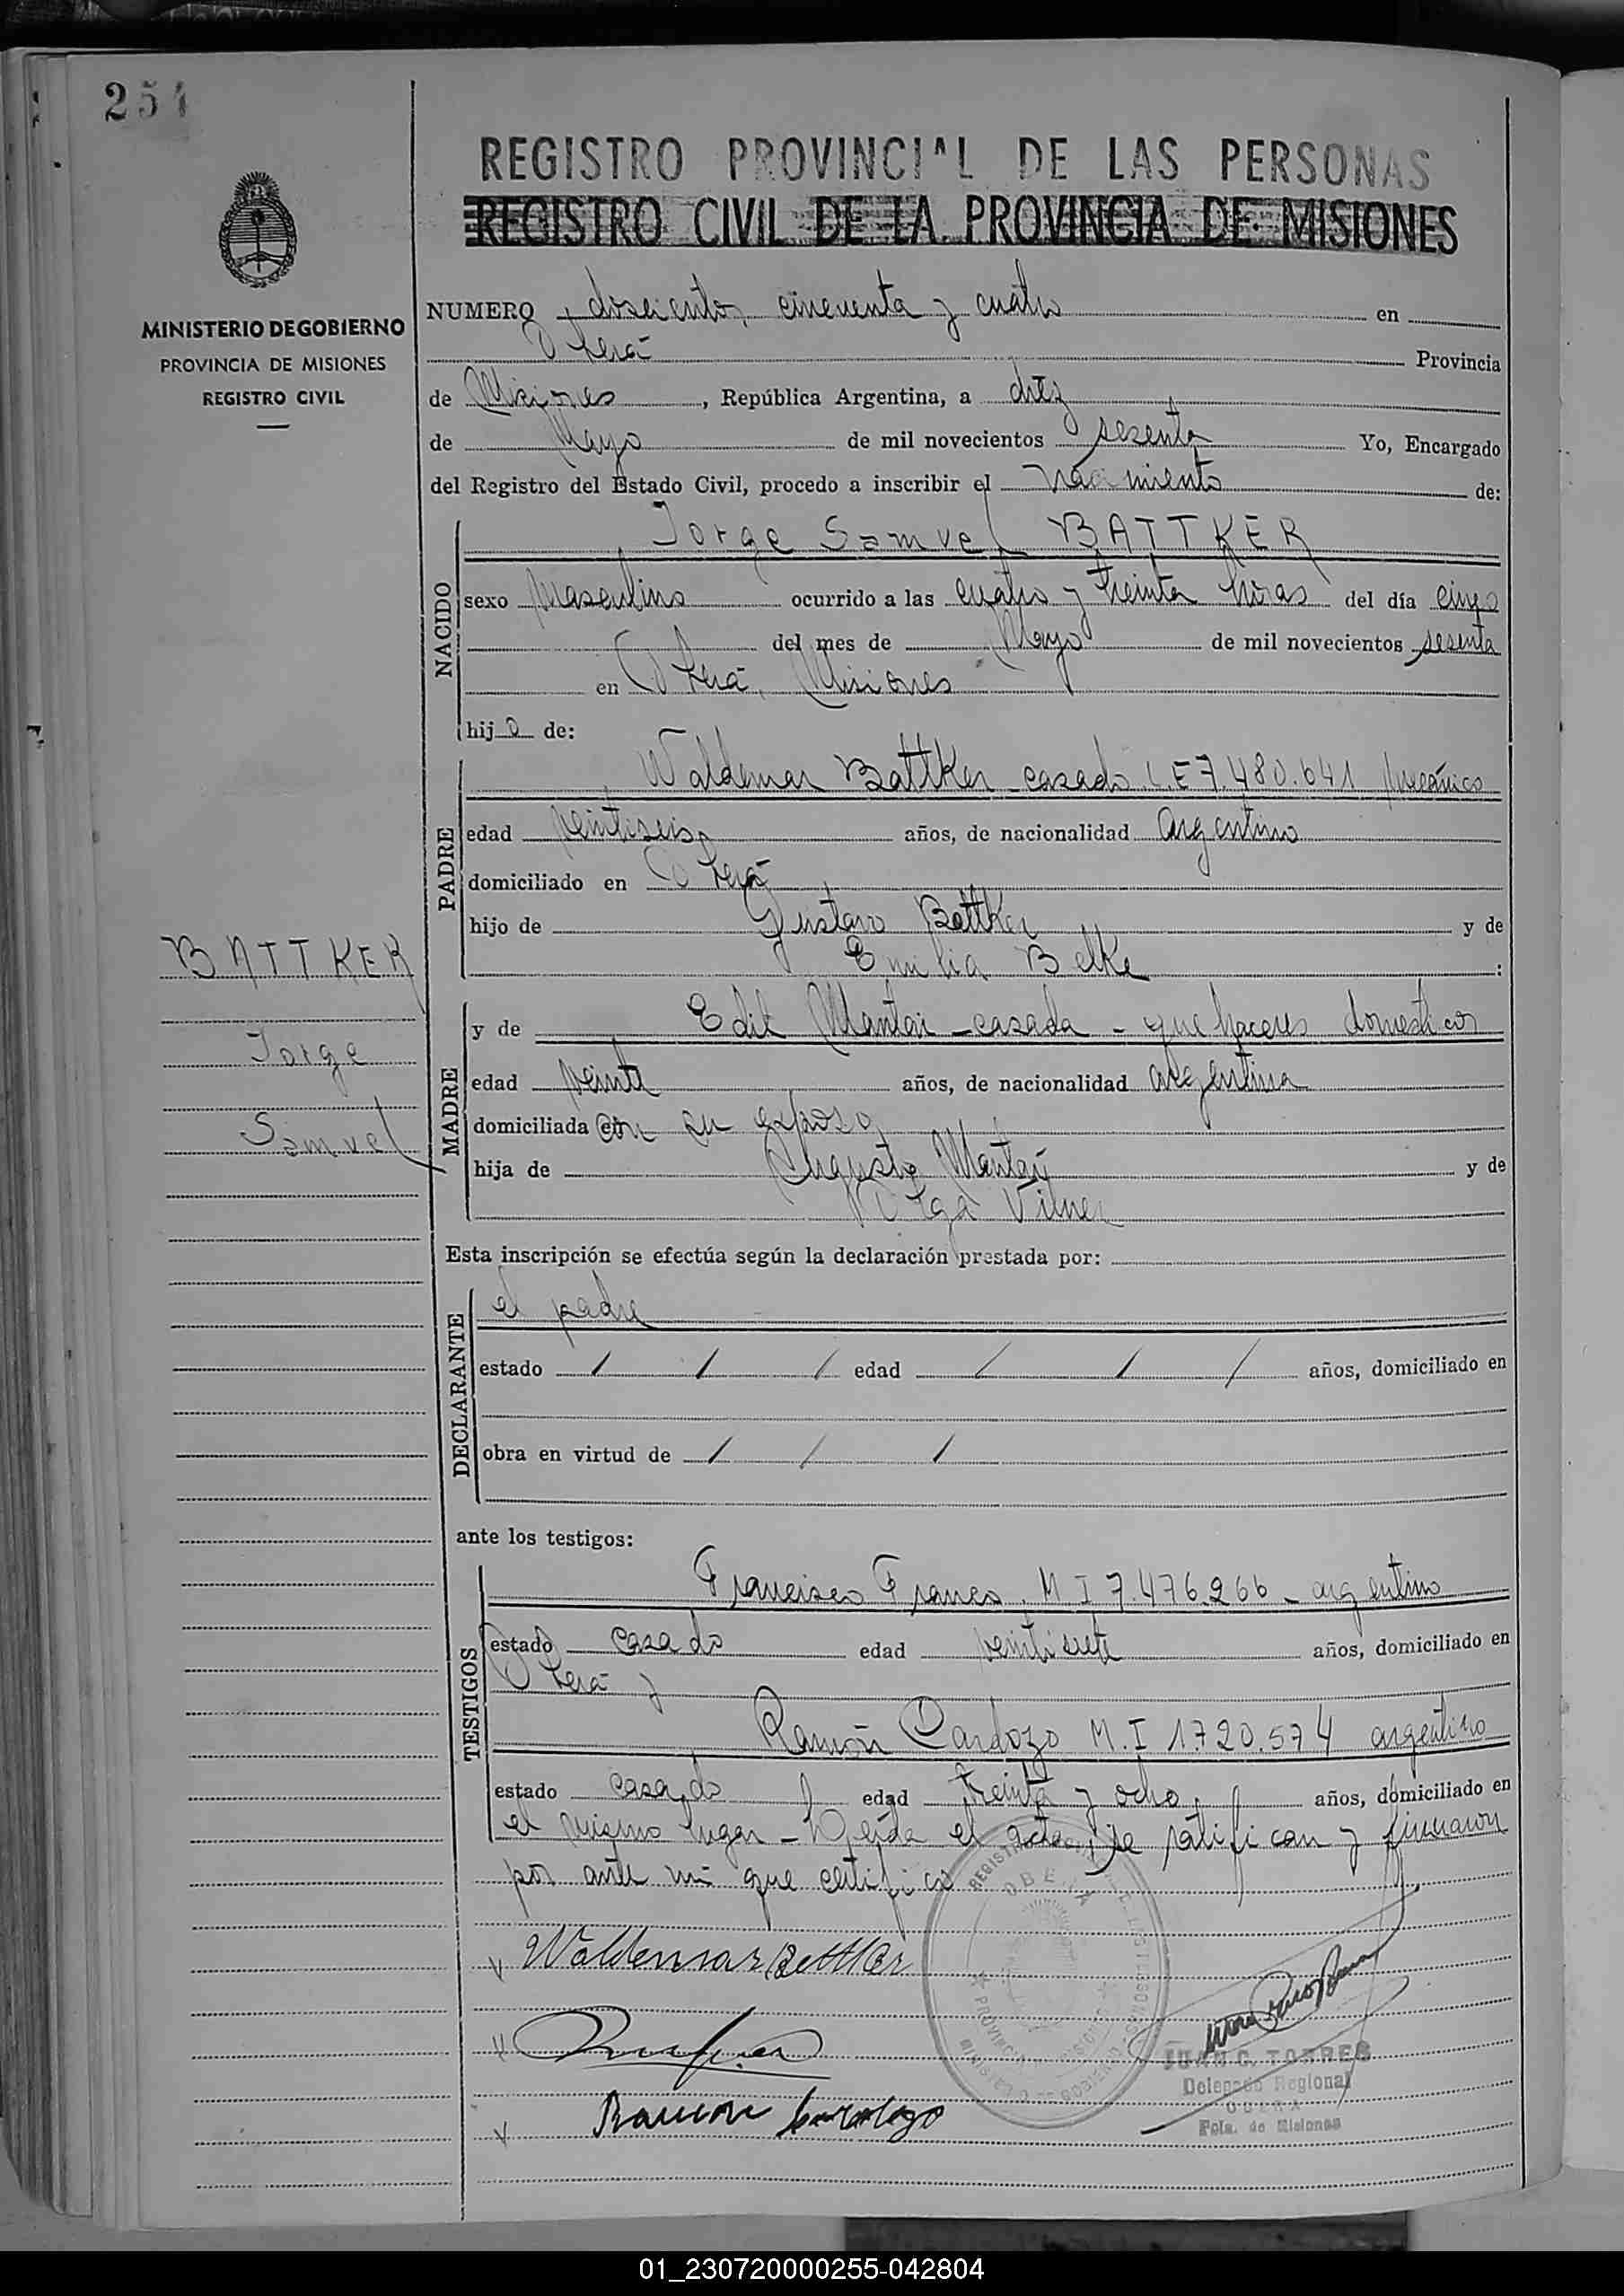 254
REGISTRO PROVINCIAL DE LAS PERSONAS
REGISTRO CIVIL DE LA PROVINCIA DE MISIONES
MINISTERIO DE GOBIERNO
PROVINCIA DE MISIONES
REGISTRO CIVIL
NUMERO doscientos cincuenta y cuatro en
Oberá Provincia
de Misiones, República Argentina, a diez
de Mayo de mil novecientos sesenta Yo, Encargado
del Registro del Estado Civil, procedo a inscribir el Nacimiento de:
NACIDO
Jorge Samuel BATTKER
sexo masculino ocurrido a las cuatro y treinta horas del día cinco
del mes de Mayo de mil novecientos sesenta
en Oberá, Misiones
hijo de:
PADRE
Waldemar Battker casado L.E 7.480.641 mecánico
edad veintiseis años, de nacionalidad argentino
domiciliado en Oberá
hijo de Gustavo Battker y de
Emilia Belke :
BATTKER
Jorge
Samuel
MADRE
y de Edit Mantai - casada - que haceres domesticos
edad veinte años, de nacionalidad argentina
domiciliada con su esposo
hija de Augusto Mantay y de
Olga
Esta inscripción se efectúa según la declaración prestada por:
DECLARANTE
el padre
estado / / / edad / / / años, domiciliado en
obra en virtud de / / /
ante los testigos:
TESTIGOS
Francisco Franco. M I 7.476.266 - argentino
estado casado edad veintisiete años, domiciliado en
Oberá y
Ramón Cardozo M.I 1.720.574 argentino
estado casado edad treinta y ocho años, domiciliado en
el mismo lugar - Leída el acta, se ratifican y firmaron
por ante mi que certifico
Waldemar Battker
Ramon Cardozo
REGISTRO
OBERA
PROVINCIA DE MISIONES
MINISTERIO DE GOBIERNO
JUAN C. TORRES
Delegado Regional
OBERA
Pcia. de Misiones
01_230720000255-042804